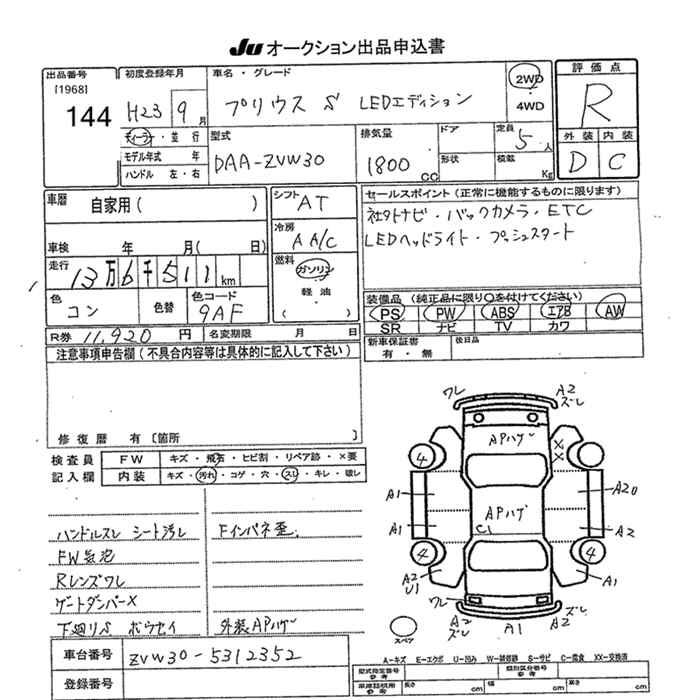 Ju オークション出品申込書
出品番号 初度登録年月 車名・グレード 評価点
[1968] 144 H23 9月 プリウス S LEDエディション 2WD 4WD R
ディーラー・並行 型式 排気量 ドア 定員 5人 外装 内装
モデル年式 年 DAA-ZVW30 1800CC 形状 積載 Kg D C
ハンドル 左・右
車歴 自家用( ) シフト AT セールスポイント(正常に機能するものに限ります)
冷房 AA/C 社外ナビ・バックカメラ・ETC
車検 年 月( 日) LEDヘッドライト・プッシュスタート
走行 13万6千511km 燃料 ガソリン 軽油 ( )
色 コン 色替 色コード 9AF 装備品(純正品に限り○を付けてください)
PS PW ABS エアB AW
SR ナビ TV カワ
R券 11,920円 名変期限 月 日 新車保証書 有・無 後日品
注意事項申告欄(不具合内容等は具体的に記入して下さい)
修復歴 有 [箇所 ]
検査員 FW キズ・飛石・ヒビ割・リペア跡・×要
記入欄 内装 キズ・汚れ・コゲ・穴・スレ・キレ・破レ
ハンドルスレ シート汚レ Fインパネ歪
FW気泡
Rレンズワレ
ゲートダンパーX
下廻りS ボウセイ 外装APハゲ
ワレ A2 ズレ
APハゲ
4 XX 4
A1 A20
APハゲ
C1
A1 A2
4 4
A2 U1 A1
ワレ ズレ
A2 ズレ A1 A2
スペア
A-キズ E-エクボ U-凹み W-補修跡 S-サビ C-腐食 XX-交換済
車台番号 ZVW30-5312352
型式指定番号 参考 類別区分番号 参考
登録番号 車庫証明用 参考 長さ cm 幅 cm 高さ cm